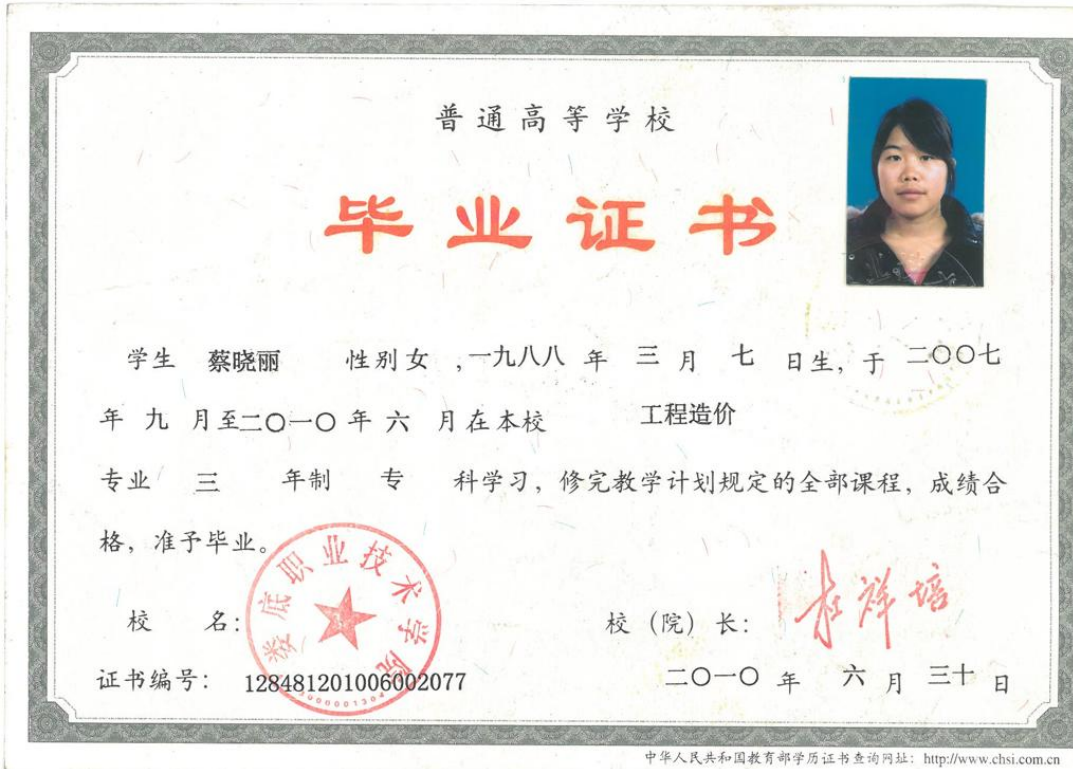 普通高等学校
毕业证书
学生 蔡晓丽 性别女 ,一九八八 年 三 月 七 日生, 于 二〇〇七
年 九 月至二〇一〇 年 六 月在本校 工程造价
专业 三 年制 专 科学习, 修完教学计划规定的全部课程, 成绩合
格, 准予毕业。
娄底职业技术学院
校 名: 校 (院) 长:
证书编号: 128481201006002077 二〇一〇 年 六 月 三十 日
中华人民共和国教育部学历证书查询网址: http://www.chsi.com.cn